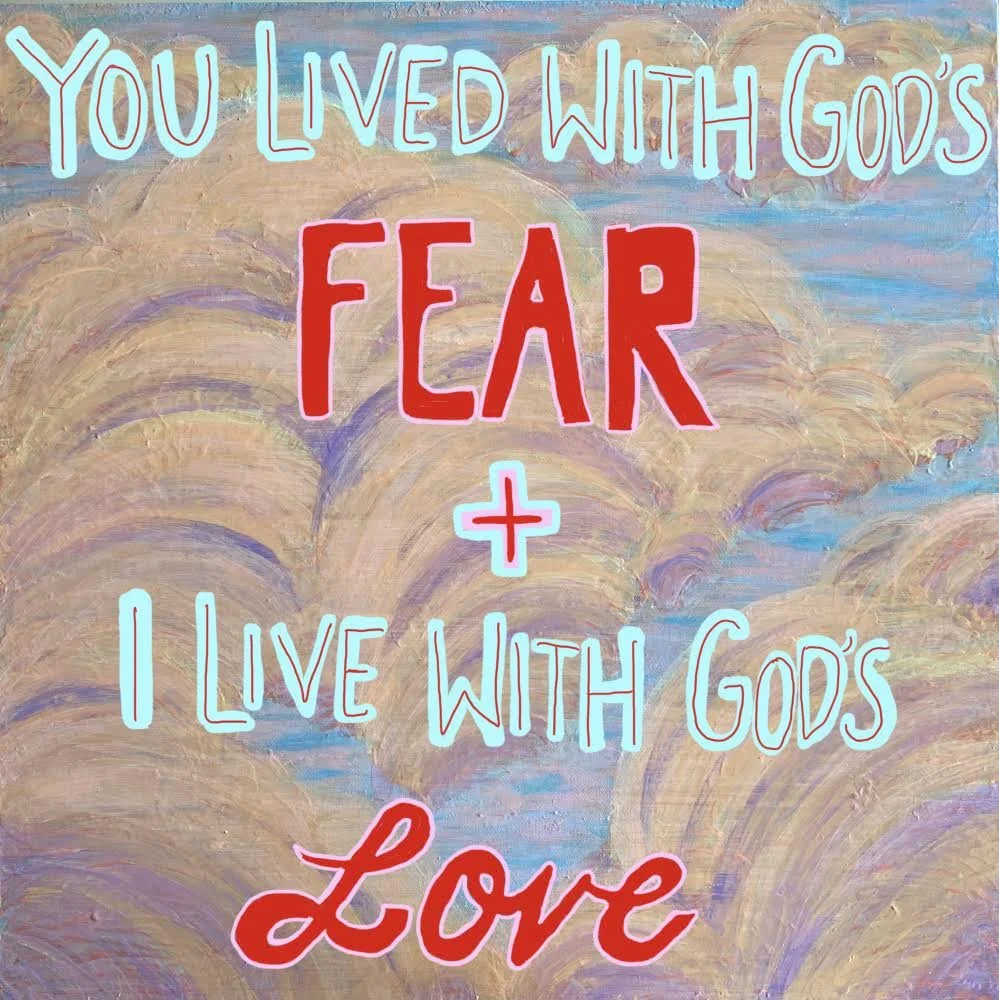 YOU LIVED WITH GOD'S
FEAR
+
I LIVE WITH GOD'S
Love